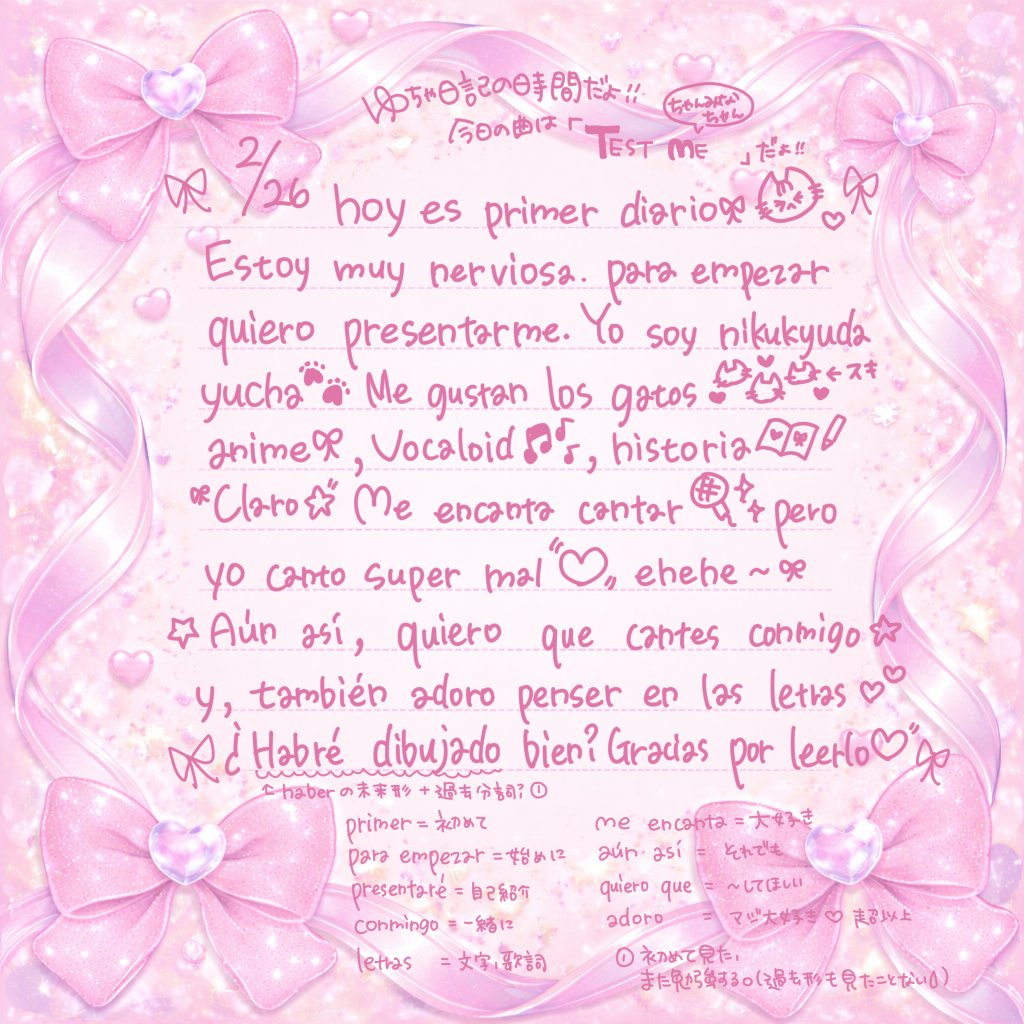 ゆちゃ日記の時間だよ!!
今日の曲は「TEST ME」だよ!!
ちゃんみなちゃん
2/26 hoy es primer diario
Estoy muy nerviosa. para empezar
quiero presentarme. Yo soy nikukyuda
yucha Me gustan los gatos ←スキ
anime, Vocaloid, historia
"Claro☆" Me encanta cantar pero
yo canto super mal♡ ehehe~
☆Aún así, quiero que cantes conmigo☆
y, también adoro penser en las letras♡♡
¿Habré dibujado bien? Gracias por leerlo♡
↑haberの未来形+過去分詞? ①
primer=初めて
para empezar=始めに
presentaré=自己紹介
conmingo=一緒に
letras =文字,歌詞
me encanta=大好き
aún así = それでも
quiero que = ~してほしい
adoro = マジ大好き♡ 超以上
①初めて見た,
また勉強する。(過去形も見たことない)